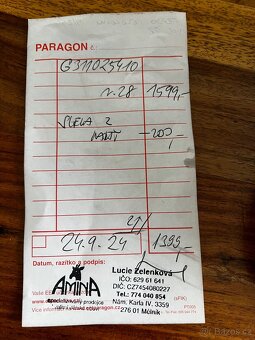 PARAGON č.:
G311025410
v.28 1599,-
SLEVA Z
-200,-
24.9.24 1399,-
Datum, razítko a podpis:
AMINA
Lucie Zelenková
IČO: 629 61 641
DIČ: CZ7454080227
Tel.: 774 040 854
Nám. Karla IV. 3359
276 01 Mělník
(sFIK)
Bazos.cz